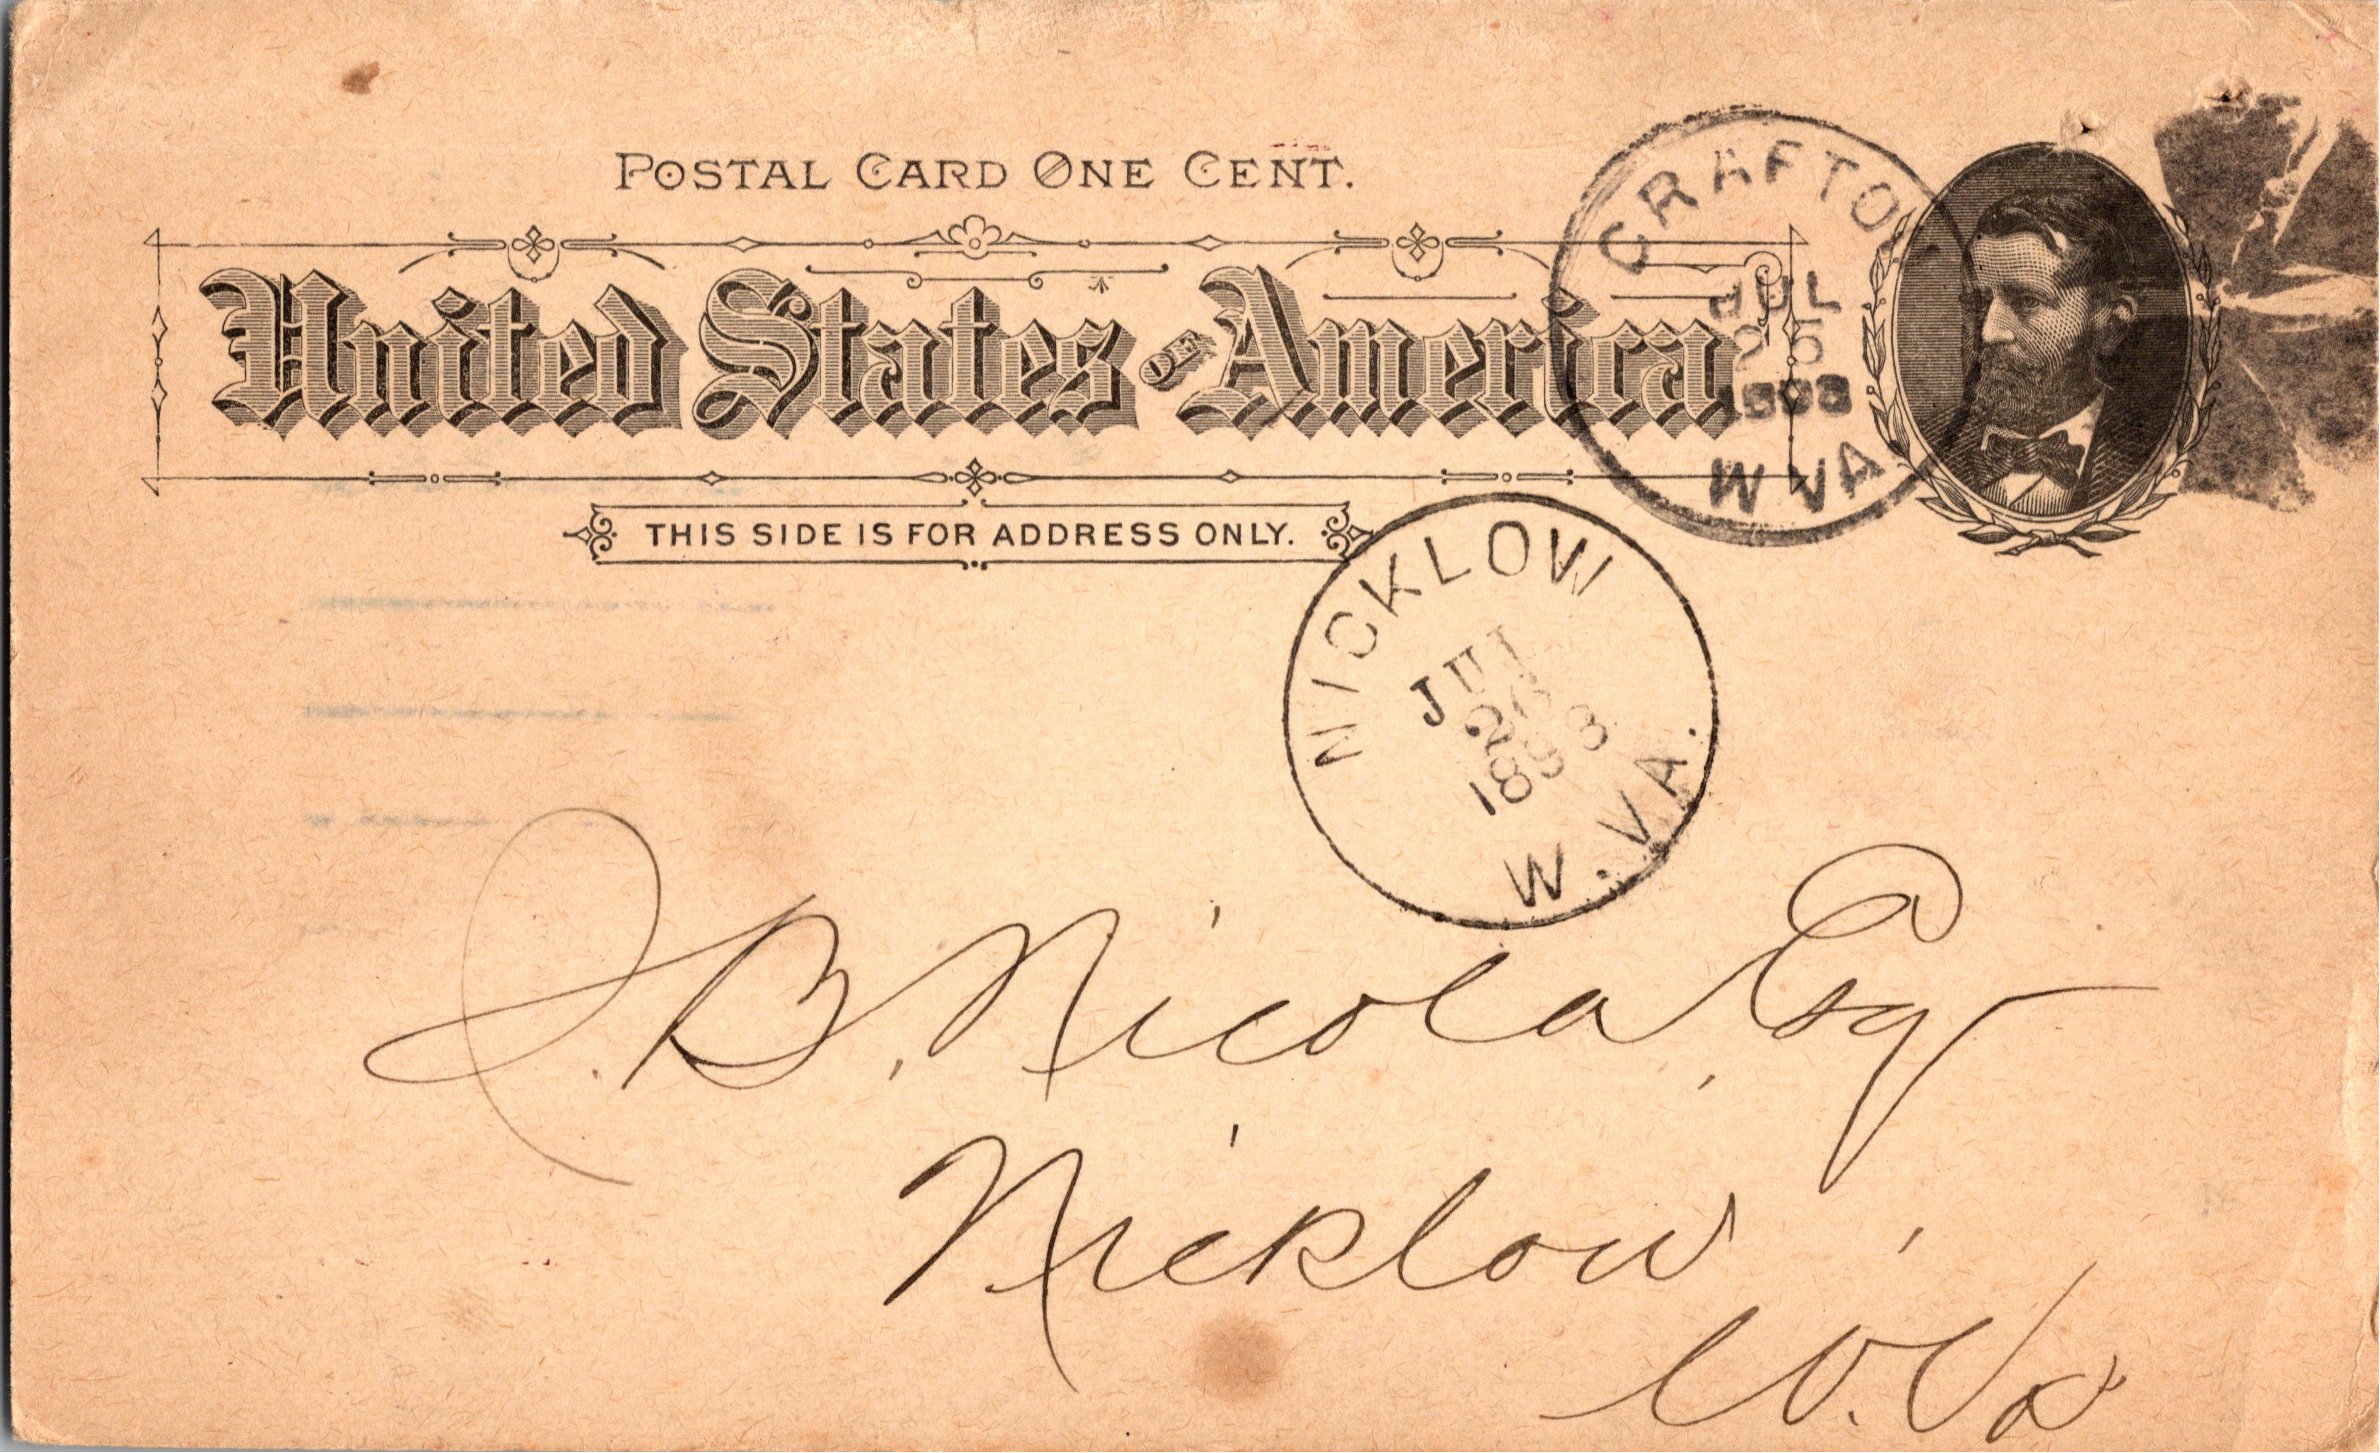 POSTAL CARD ONE CENT.
United States OF America
THIS SIDE IS FOR ADDRESS ONLY.
GRAFTON
JUL
1893
W VA
NICKLOW
JUL
26
1893
W. VA.
J. B. Nicola, Esq
Nicklow
W. Va